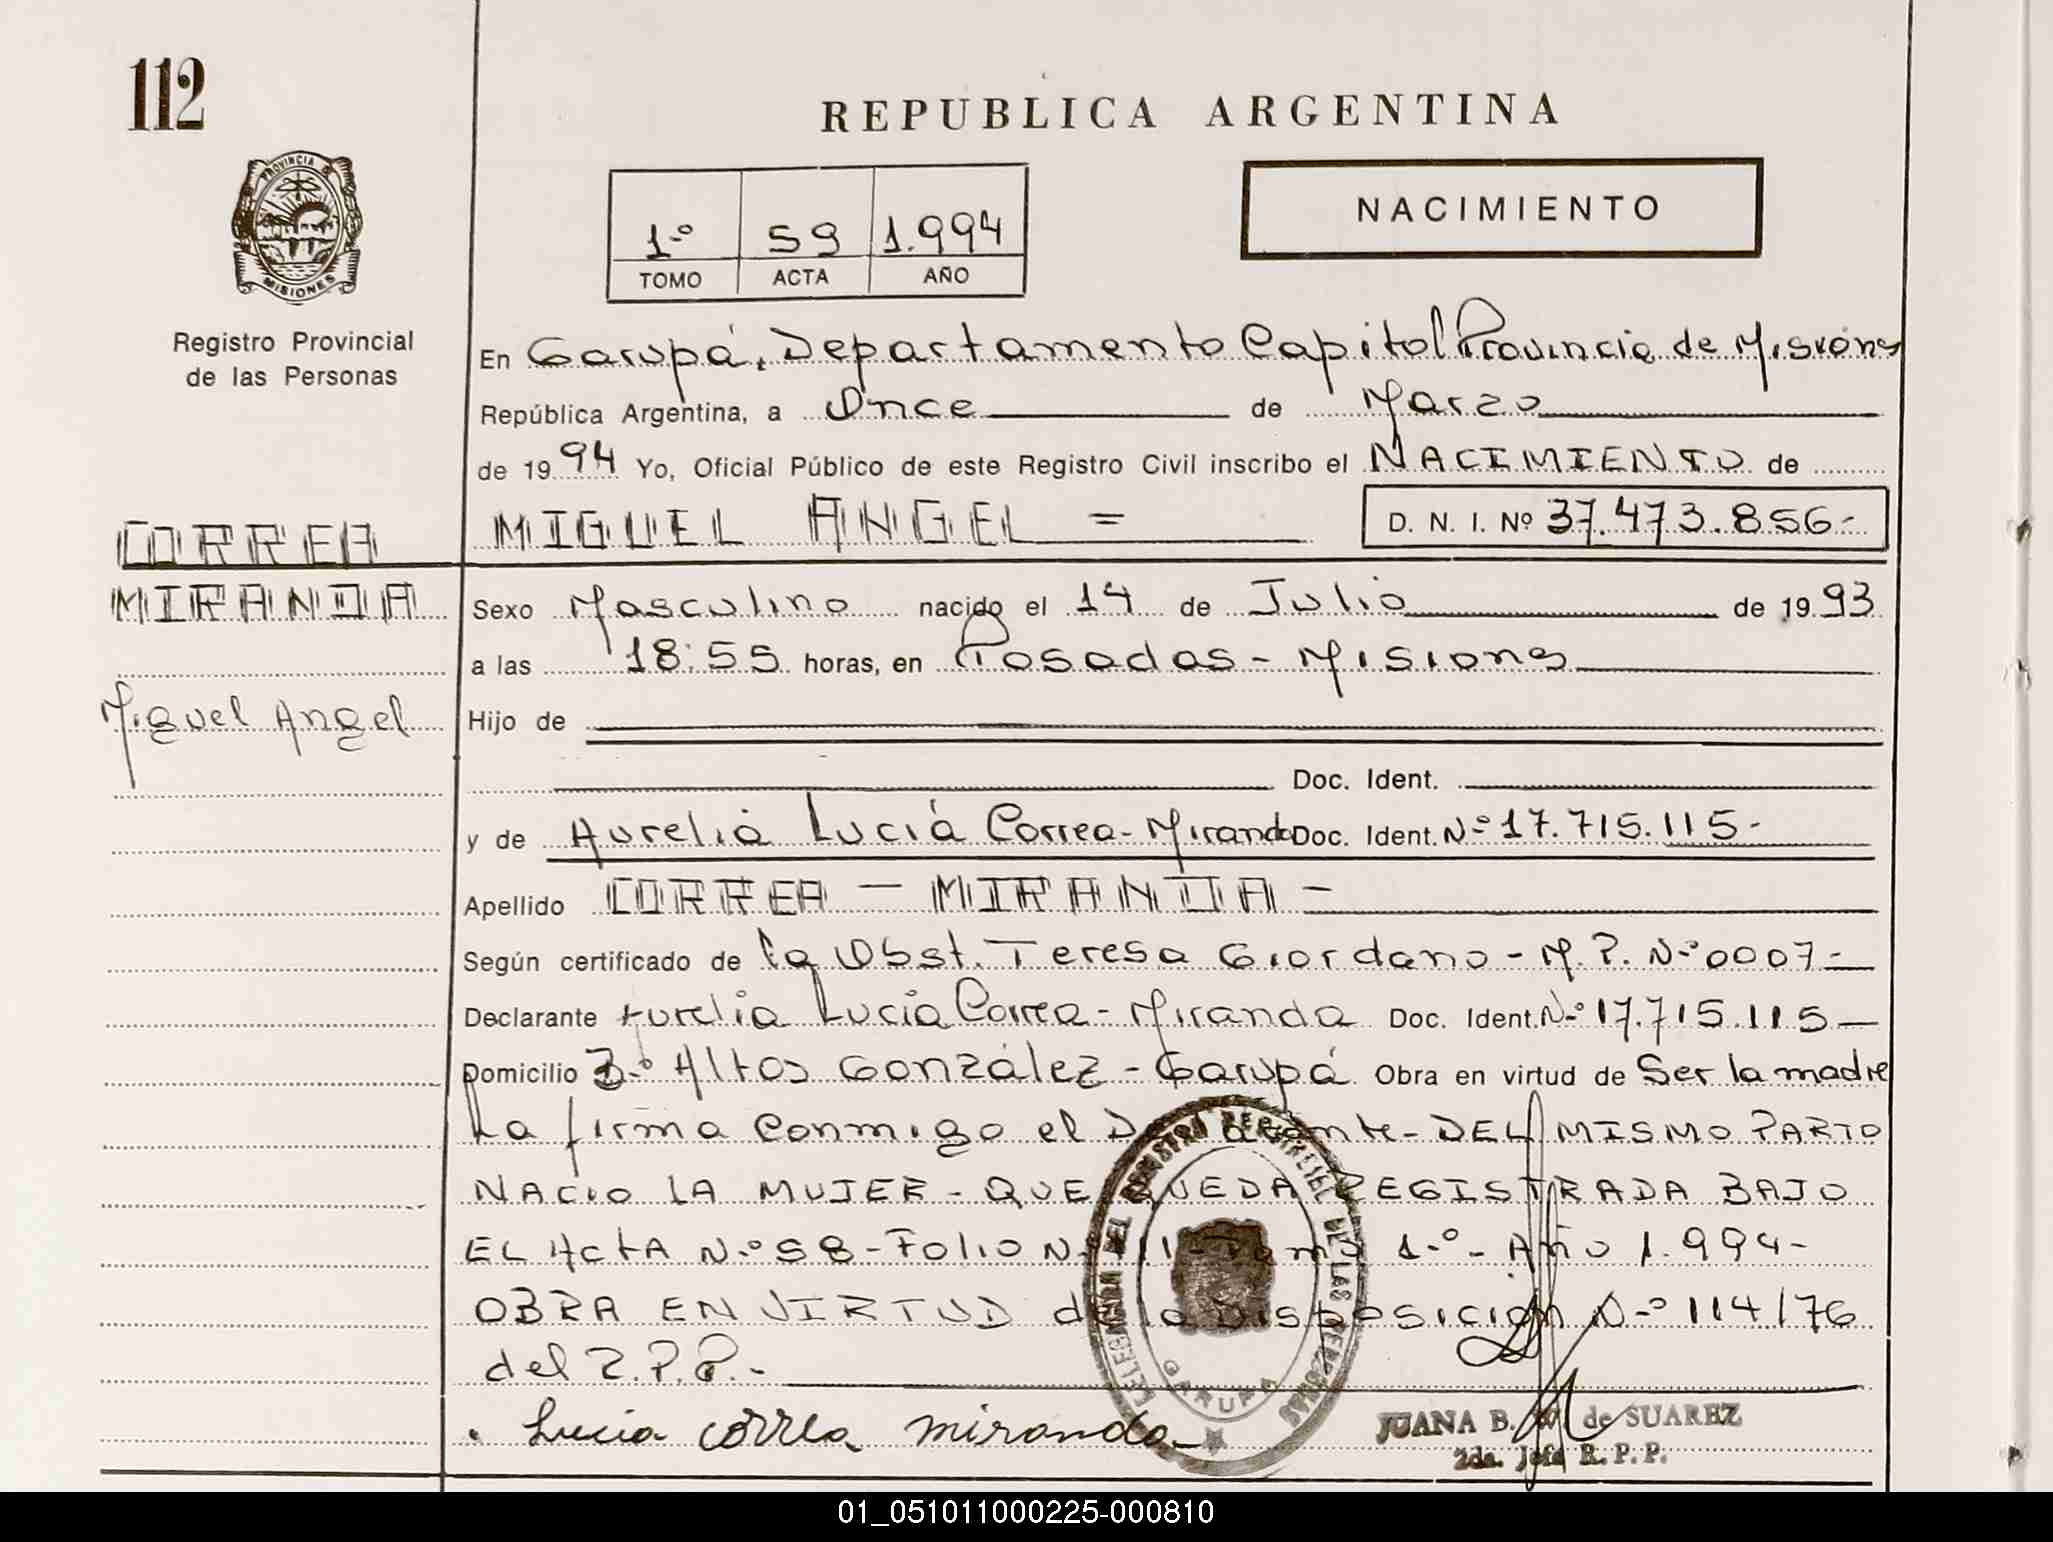 112
REPUBLICA ARGENTINA
PROVINCIA DE
MISIONES
Registro Provincial
de las Personas
1-º 59 1.994
TOMO ACTA AÑO
NACIMIENTO
En Garupá, Departamento Capital Provincia de Misiones
República Argentina, a Once de Marzo
de 1994 Yo, Oficial Público de este Registro Civil inscribo el NACIMIENTO de
CORREA MIGUEL ANGEL = D. N. I. Nº 37.473.856-
MIRANDA Sexo Masculino nacido el 14 de Julio de 1993
a las 18:55 horas, en Posadas - Misiones
Miguel Angel Hijo de
Doc. Ident.
y de Aurelia Lucia Correa - Miranda Doc. Ident. N-º 17.715.115-
Apellido CORREA - MIRANDA -
Según certificado de la Obst. Teresa Giordano - M.P. N-º 0007-
Declarante Aurelia Lucia Correa - Miranda Doc. Ident. N-º 17.715.115-
Domicilio Bº Altos González - Garupá Obra en virtud de Ser la madre
La firma conmigo el Declarante - DEL MISMO PARTO
NACIO LA MUJER - QUE QUEDA REGISTRADA BAJO
EL ActA N-º 58 - Folio N- Tomo 1-º - Año 1.994-
OBRA EN VIRTUD de la Disposición N-º 114/76
del R.P.P.-
Lucia correa miranda
DELEGACION DEL REGISTRO PROVINCIAL DE LAS PERSONAS
GARUPA
JUANA B. de SUAREZ
2da. Jefe R. P. P.
01_051011000225-000810